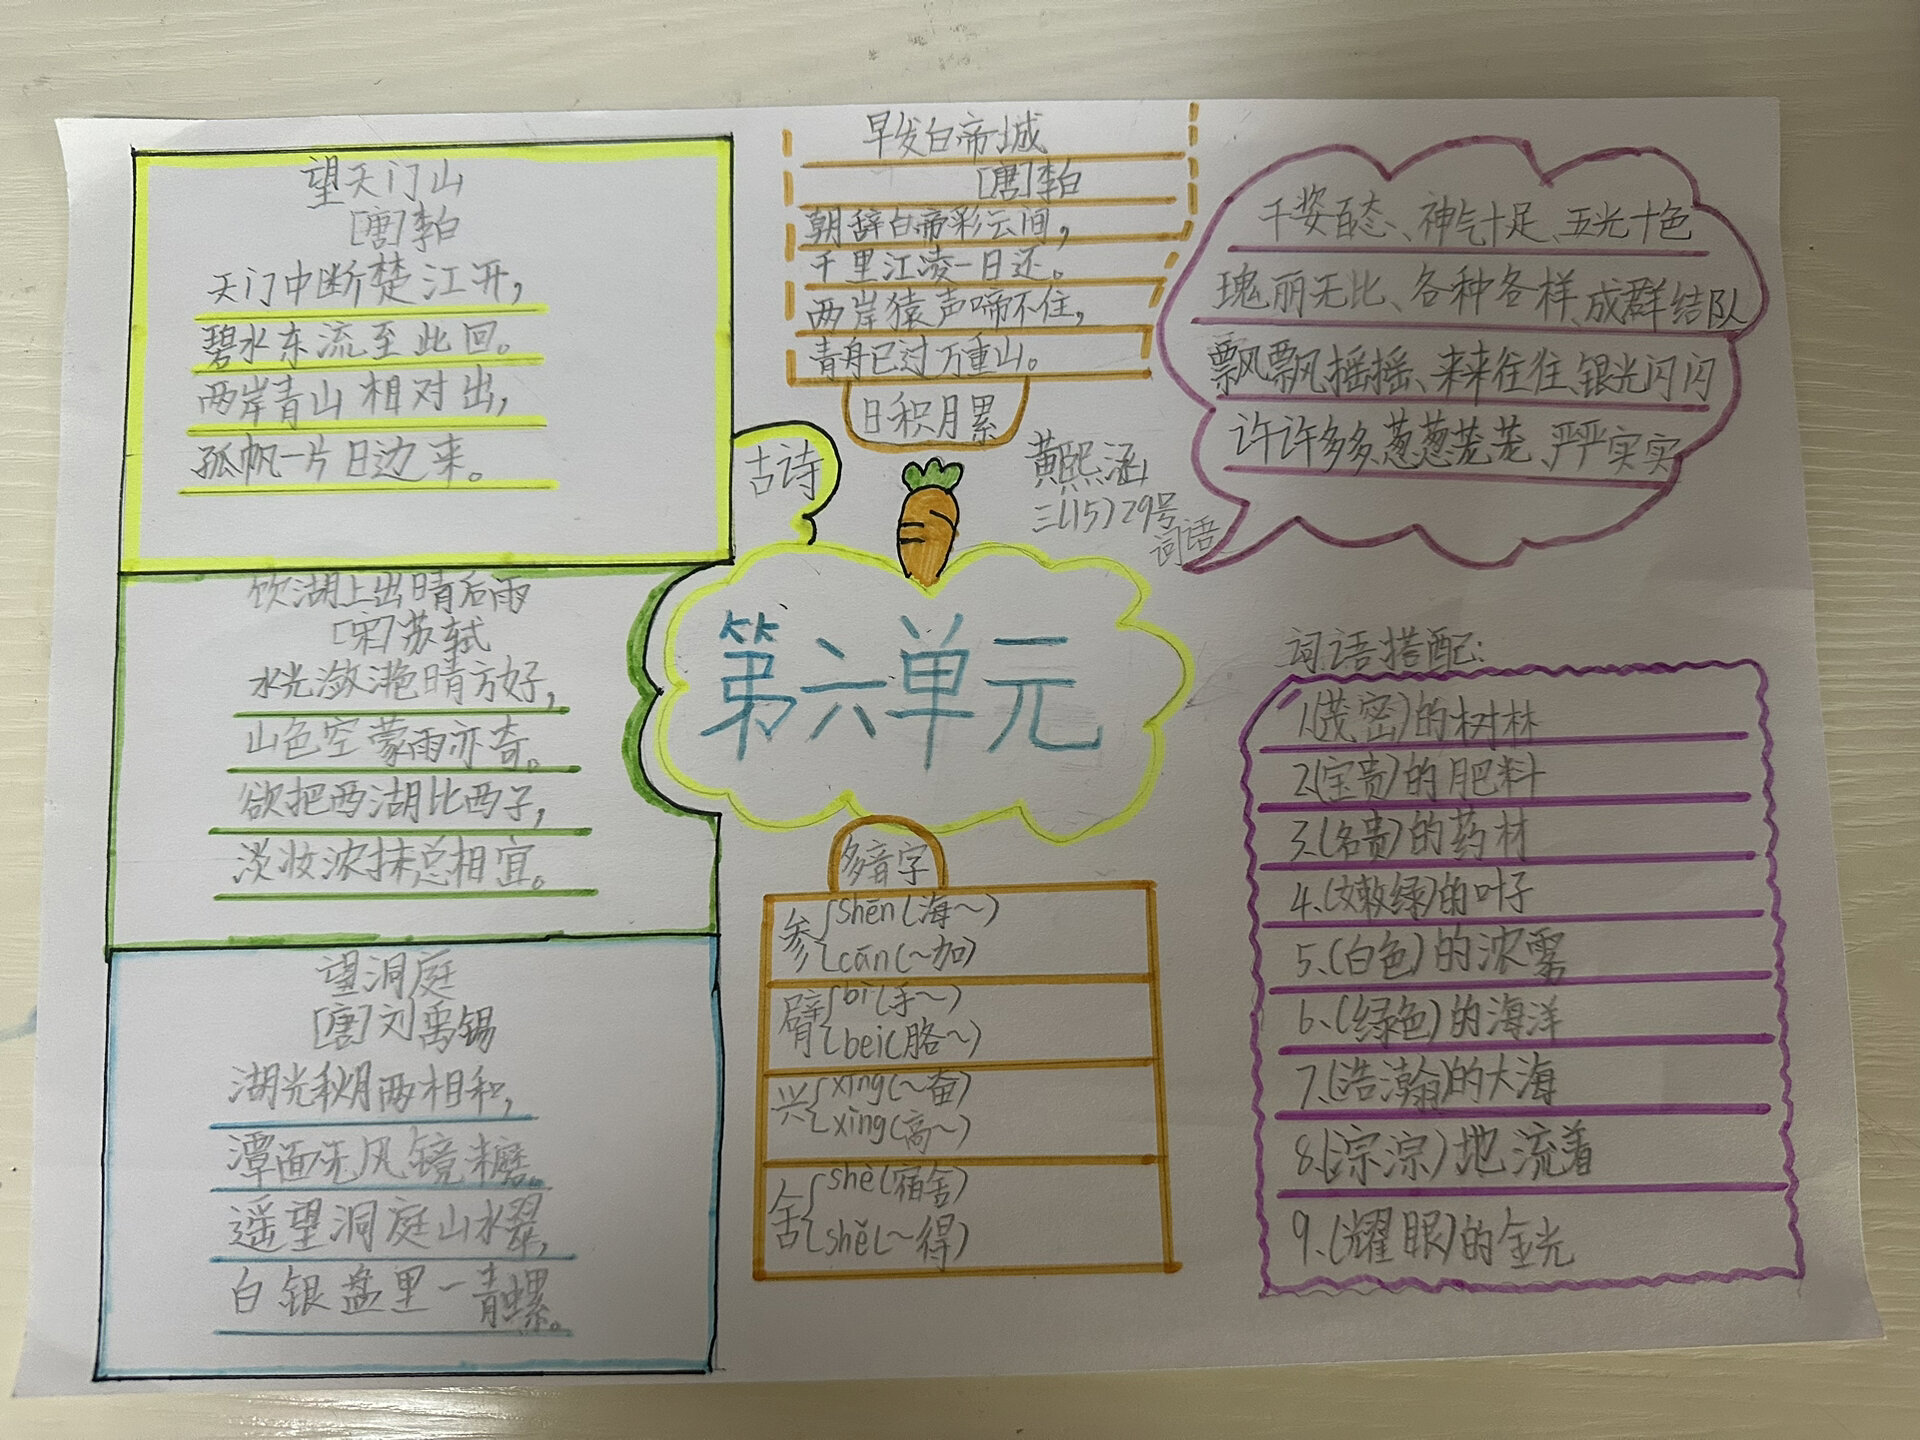 望天门山
[唐]李白
天门中断楚江开，
碧水东流至此回。
两岸青山相对出，
孤帆一片日边来。
饮湖上出晴后雨
[宋]苏轼
水光潋滟晴方好，
山色空蒙雨亦奇。
欲把西湖比西子，
淡妆浓抹总相宜。
望洞庭
[唐]刘禹锡
湖光秋月两相和，
潭面无风镜未磨。
遥望洞庭山水翠，
白银盘里一青螺。
古诗
早发白帝城
[唐]李白
朝辞白帝彩云间，
千里江凌一日还。
两岸猿声啼不住，
青舟已过万重山。
日积月累
黄熙涵
三(15)29号
词语
第六单元
多音字
参{shēn(海~)
cān(~加)
臂{bì(手~)
bei(胳~)
兴{xīng(~奋)
xìng(高~)
舍{shè(宿舍)
shě(~得)
千姿百态、神气十足、五光十色
瑰丽无比、各种各样、成群结队
飘飘摇摇、来来往往、银光闪闪
许许多多、葱葱茏茏、严严实实
词语搭配:
1.(茂密)的树林
2.(宝贵)的肥料
3.(名贵)的药材
4.(嫩绿)的叶子
5.(白色)的浓雾
6.(绿色)的海洋
7.(浩瀚)的大海
8.(淙淙)地流着
9.(耀眼)的金光